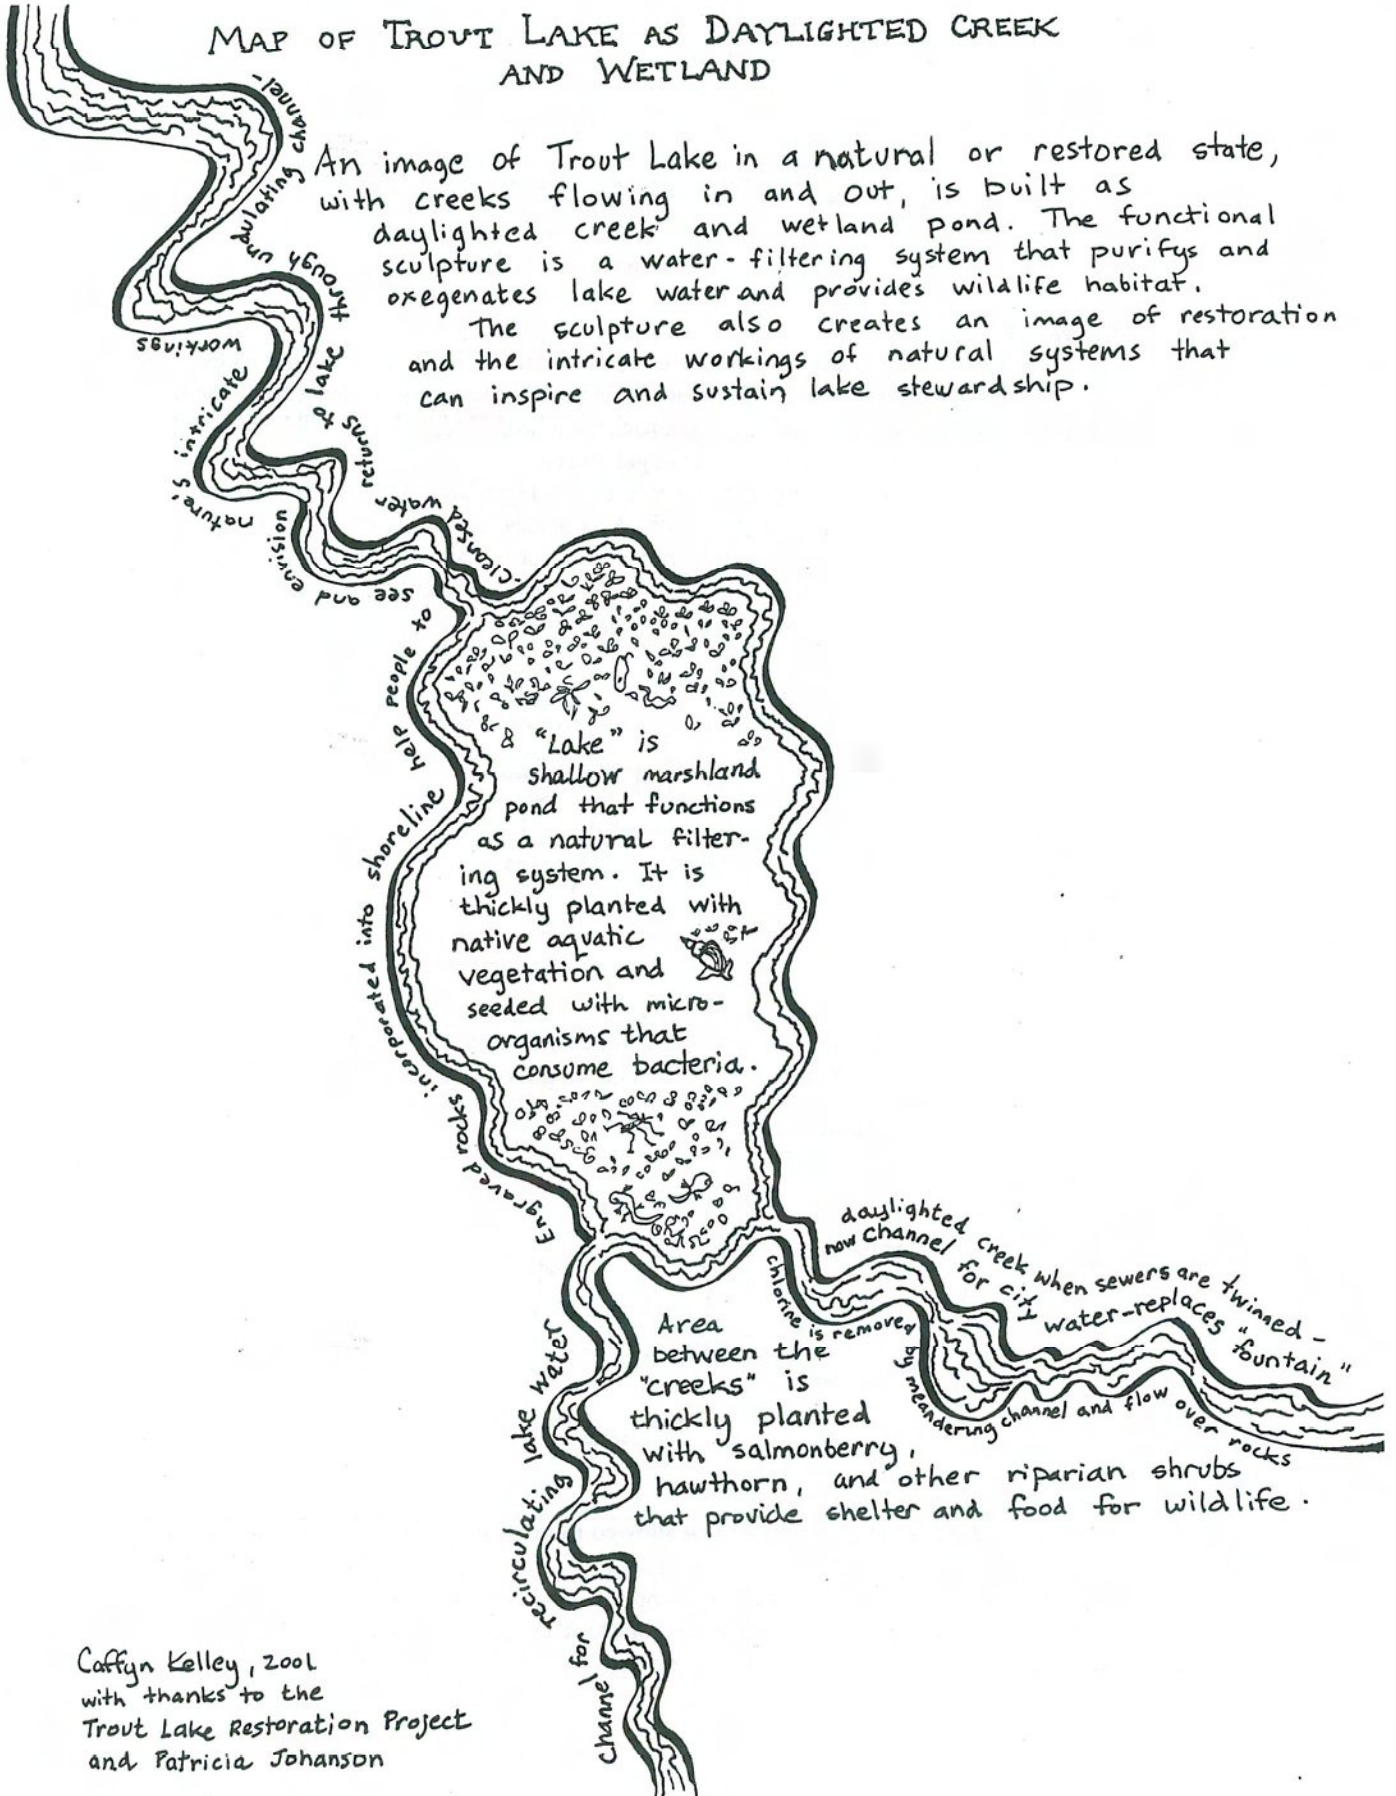 MAP OF TROUT LAKE AS DAYLIGHTED CREEK
AND WETLAND
An image of Trout Lake in a natural or restored state,
with creeks flowing in and out, is built as
daylighted creek and wetland pond. The functional
sculpture is a water-filtering system that purifys and
oxegenates lake water and provides wildlife habitat.
The sculpture also creates an image of restoration
and the intricate workings of natural systems that
can inspire and sustain lake stewardship.
·cleansed water returns to lake through undulating channel-
Engraved rocks incorporated into shoreline help people to see and envision nature's intricate workings
"Lake" is
shallow marshland
pond that functions
as a natural filter-
ing system. It is
thickly planted with
native aquatic
vegetation and
seeded with micro-
organisms that
consume bacteria.
daylighted creek when sewers are twinned-
now channel for city water-replaces "fountain"
chlorine is removed by meandering channel and flow over rocks
Area
between the
"creeks" is
thickly planted
with salmonberry,
hawthorn, and other riparian shrubs
that provide shelter and food for wildlife.
channel for recirculating lake water
Caffyn Kelley, 2001
with thanks to the
Trout Lake Restoration Project
and Patricia Johanson